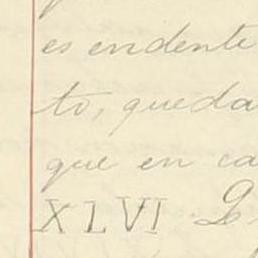 es evidente
to, queda
que en ca
XLVI